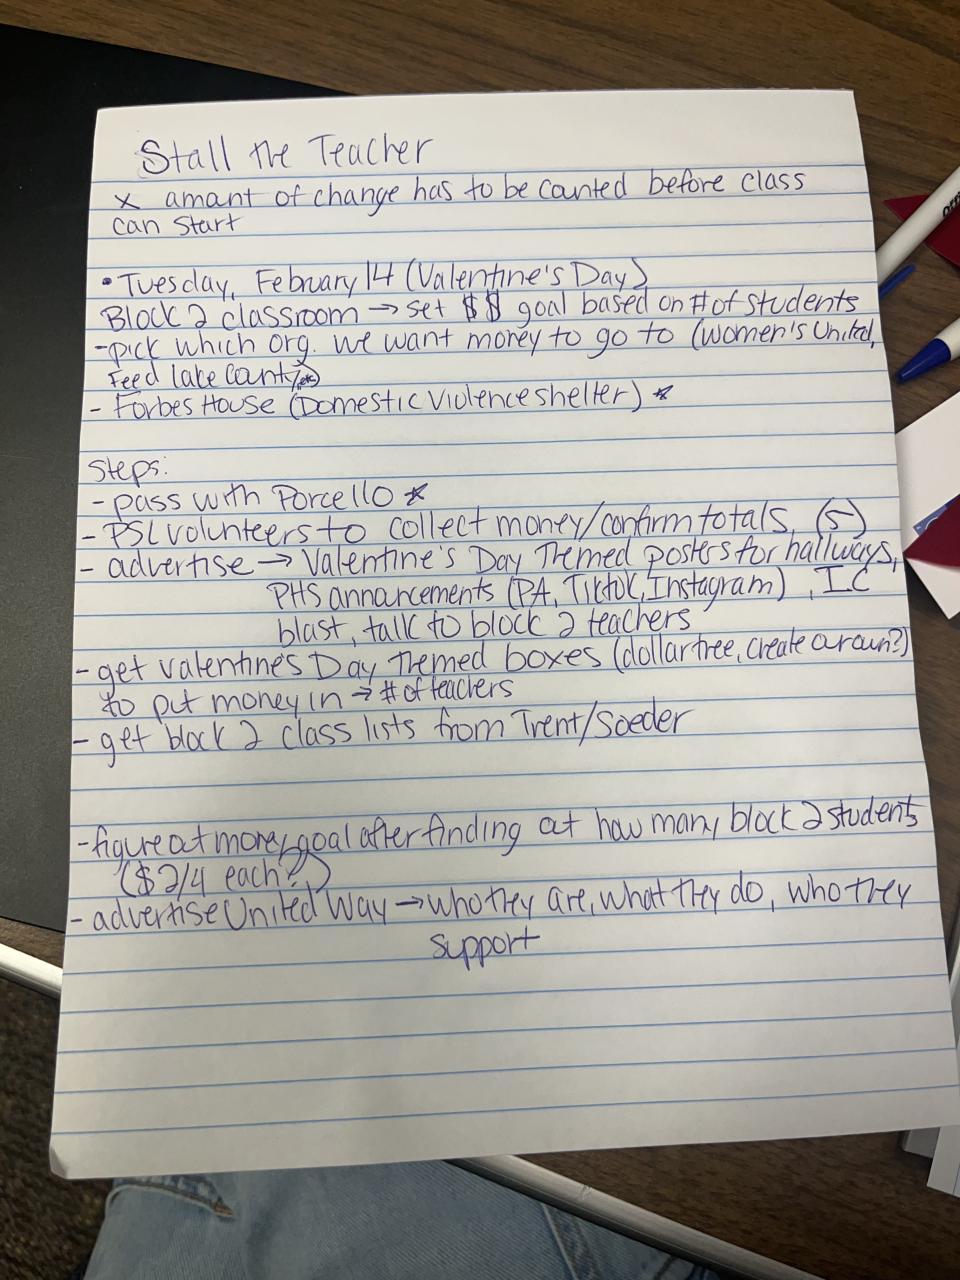 Stall the Teacher
x amant of change has to be counted before class
can start
• Tuesday, February 14 (Valentine's Day)
Block 2 classroom → set $$ goal based on # of students
- pick which org. we want money to go to (Women's United,
Feed Lake County, etc)
- Forbes House (Domestic Violence shelter) *
Steps:
- pass with Porcello *
- PSL volunteers to collect money/confirm totals (5)
- advertise → Valentine's Day Themed posters for hallways,
PHS annancements (PA, Tiktok, Instagram), IC
blast, talk to block 2 teachers
- get Valentine's Day Themed boxes (dollar tree, create our own?)
to put money in → # of teachers
- get block 2 class lists from Trent/Soeder
- figure out money goal after finding out how many block 2 students
($2/4 each?)
- advertise United Way → who they are, what they do, who they
support